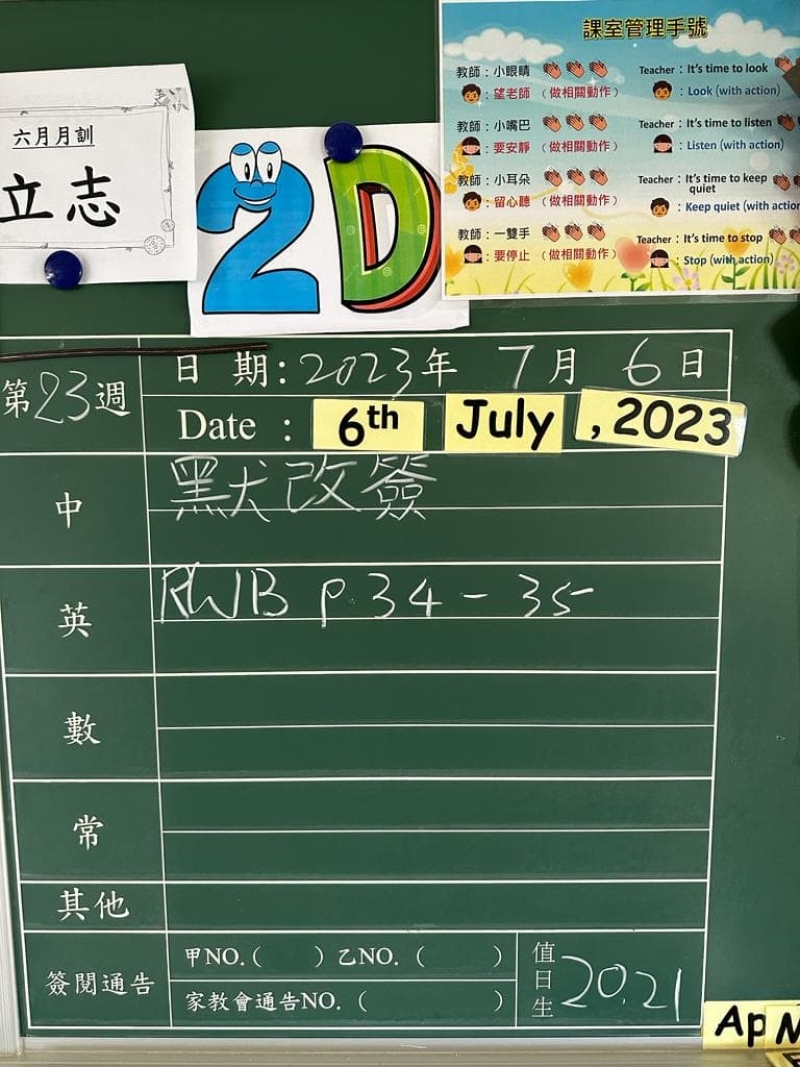 六月月訓
立志
2D
課室管理手號
教師：小眼睛
：望老師 （做相關動作）
Teacher：It's time to look
：Look (with action)
教師：小嘴巴
：要安靜 （做相關動作）
Teacher：It's time to listen
：Listen (with action)
教師：小耳朵
：留心聽 （做相關動作）
Teacher：It's time to keep
quiet
：Keep quiet (with action
教師：一雙手
：要停止 （做相關動作）
Teacher：It's time to stop
：Stop (with action)
第23週
日 期：2023年 7月 6日
Date : 6th July , 2023
中 默改簽
英 RWB p.34-35
數
常
其他
簽閱通告
甲NO.( ) 乙NO. ( )
家教會通告NO. ( )
值日生 20.21
Ap